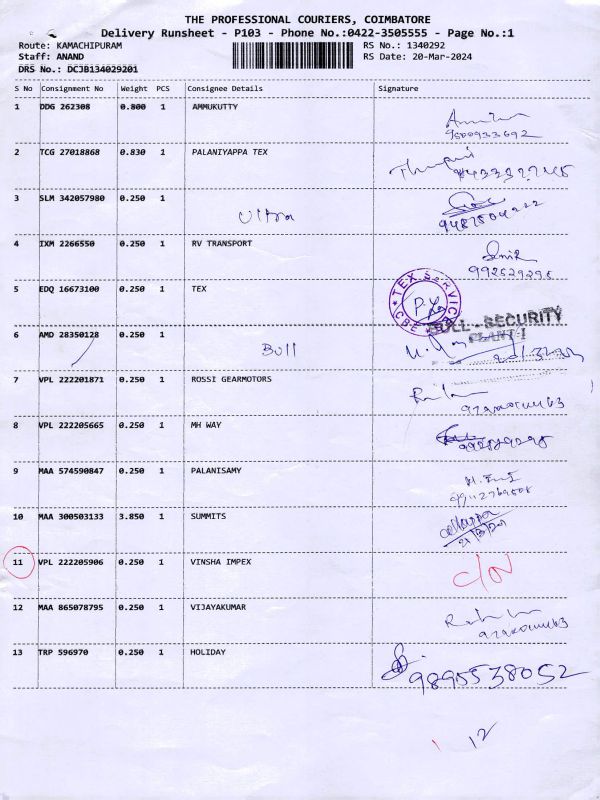 THE PROFESSIONAL COURIERS, COIMBATORE
Delivery Runsheet - P103 - Phone No.:0422-3505555 - Page No.:1
Route: KAMACHIPURAM RS No.: 1340292
Staff: ANAND RS Date: 20-Mar-2024
DRS No.: DCJB134029201
S No Consignment No Weight PCS Consignee Details Signature
1 DDG 262308 0.800 1 AMMUKUTTY
9500933692
2 TCG 27018868 0.830 1 PALANIYAPPA TEX
3 SLM 342057980 0.250 1
Ultra
4 IXM 2266550 0.250 1 RV TRANSPORT
5 EDQ 16673100 0.250 1 TEX
TEX SERVICE CBE
6 AMD 28350128 0.250 1
Bull
BULL - SECURITY
PLANT-I
7 VPL 222201871 0.250 1 ROSSI GEARMOTORS
8 VPL 222205665 0.250 1 MH WAY
9 MAA 574590847 0.250 1 PALANISAMY
10 MAA 300503133 3.850 1 SUMMITS
11 VPL 222205906 0.250 1 VINSHA IMPEX
12 MAA 865078795 0.250 1 VIJAYAKUMAR
13 TRP 596970 0.250 1 HOLIDAY
9895538052
12